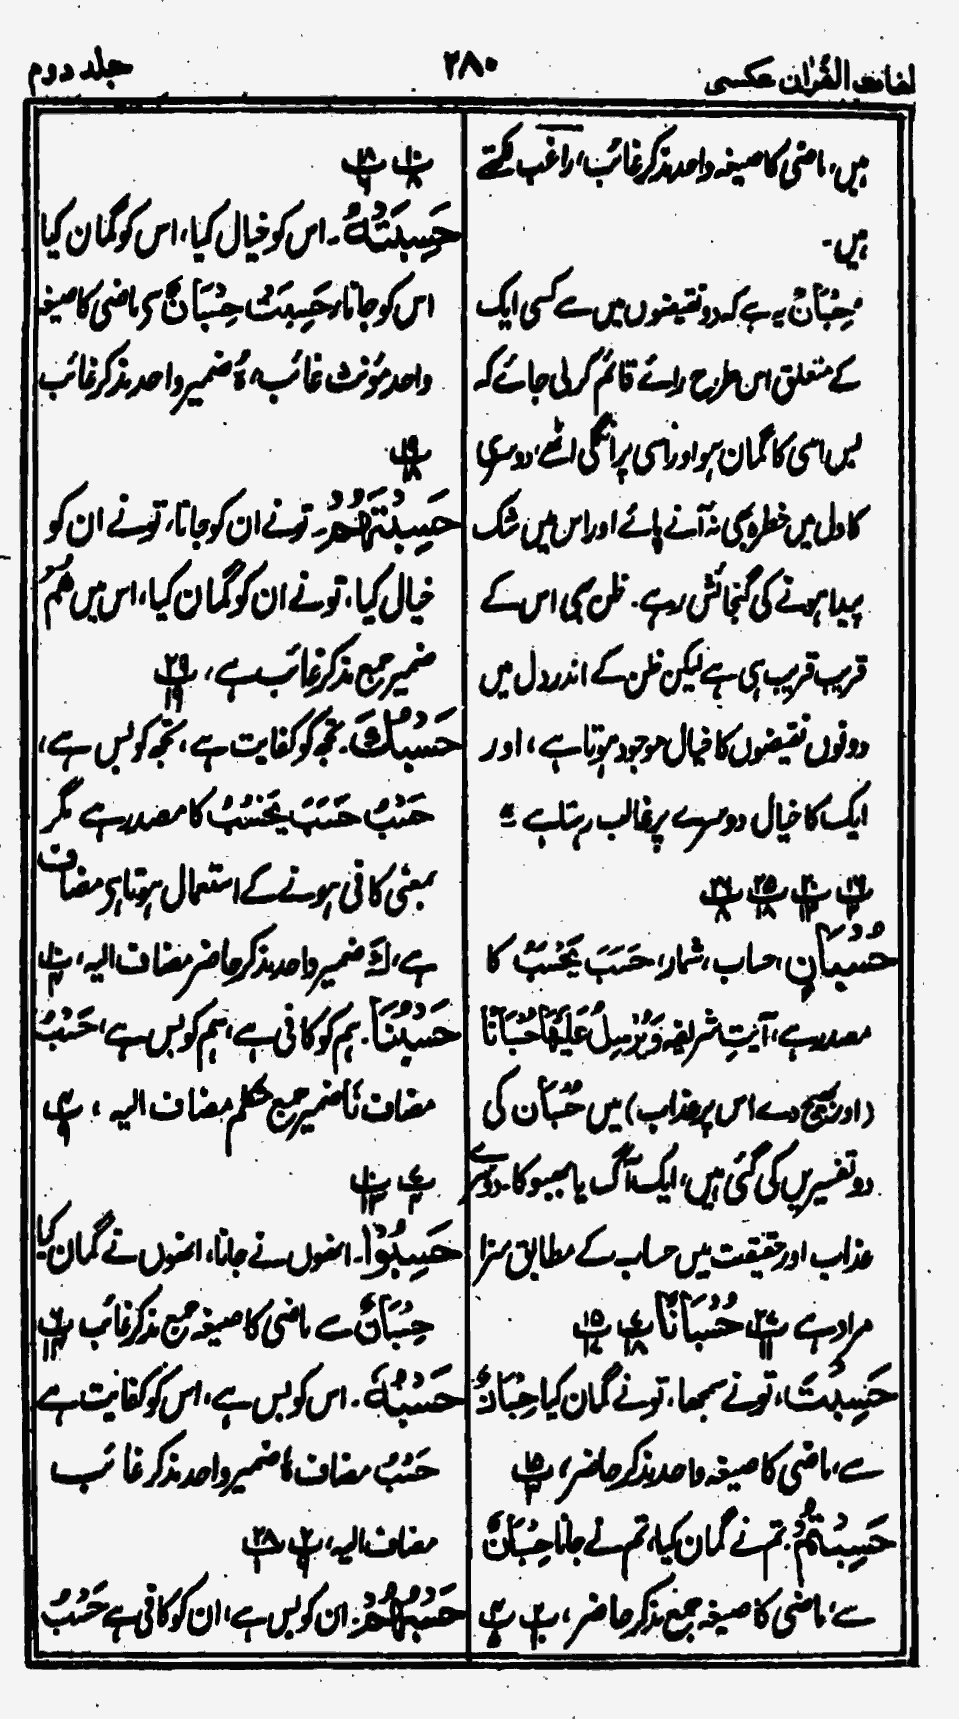 لغات القرآن عکسی
۲۸۰
جلد دوم
ہیں، ماضی کا صیغہ واحد مذکر غائب، راغب لکھتے
ہیں۔
حِسْبَانٌ یہ ہے کہ دو نقیضوں میں سے کسی ایک
کے متعلق اس طرح رائے قائم کر لی جائے کہ
بس اسی کا گمان ہو اور اسی پر انگلی اٹھے، دوسری
کا دل میں خطرہ بھی نہ آنے پائے اور اس میں شک
پیدا ہونے کی گنجائش رہے۔ ظن بھی اس کے
قریب قریب ہی ہے لیکن ظن کے اندر دل میں
دونوں نقیضوں کا خیال موجود ہوتا ہے، اور
ایک کا خیال دوسرے پر غالب رہتا ہے
حُسْبَانٍ، حساب، شمار، حَسَبَ یَحْسُبُ کا
مصدر ہے، آیتِ شریفہ وَیُرْسِلَ عَلَیْهَا حُسْبَانًا
(اور بھیج دے اس پر عذاب) میں حُسْبَان کی
دو تفسیریں کی گئی ہیں، ایک آگ یا بھبوکا۔ دوسرے
عذاب اور حقیقت میں حساب کے مطابق سزا
مراد ہے حُسْبَانًا
حَسِبْتَ، تو نے سمجھا، تو نے گمان کیا حِسْبَانٌ
سے، ماضی کا صیغہ واحد مذکر حاضر، پ ۱۵
حَسِبْتُمْ۔ تم نے گمان کیا، تم نے جانا حِسْبَانٌ
سے، ماضی کا صیغہ جمع مذکر حاضر،
حَسِبَتْهُ۔ اس کو خیال کیا، اس کو گمان کیا
اس کو جانا، حَسِبَتْ حِسْبَانٌ سے ماضی کا صیغہ
واحد مؤنث غائب، هُ ضمیر واحد مذکر غائب
پ ۱۹ ۱۸
حَسِبْتَهُمْ۔ تو نے ان کو جانا، تو نے ان کو
خیال کیا، تو نے ان کو گمان کیا، اس میں هُمْ
ضمیر جمع مذکر غائب ہے، پ ۲۹ ۱۹
حَسْبُكَ۔ تجھ کو کفایت ہے، تجھ کو بس ہے،
حَسْبُ حَسَبَ یَحْسُبُ کا مصدر ہے مگر
بمعنی کافی ہونے کے استعمال ہوتا ہے مضاف
ہے، كَ ضمیر واحد مذکر حاضر مضاف الیہ،
حَسْبُنَا۔ ہم کو کافی ہے، ہم کو بس ہے، حَسْبُ
مضاف نَا ضمیر جمع متکلم مضاف الیہ،
حَسِبُوْا۔ انھوں نے جانا، انھوں نے گمان کیا
حِسْبَانٌ سے ماضی کا صیغہ جمع مذکر غائب
حَسْبُهٗ۔ اس کو بس ہے، اس کو کفایت ہے
حَسْبُ مضاف هُ ضمیر واحد مذکر غائب
مضاف الیہ،
حَسْبُهُمْ۔ ان کو بس ہے، ان کو کافی ہے حَسْبُ